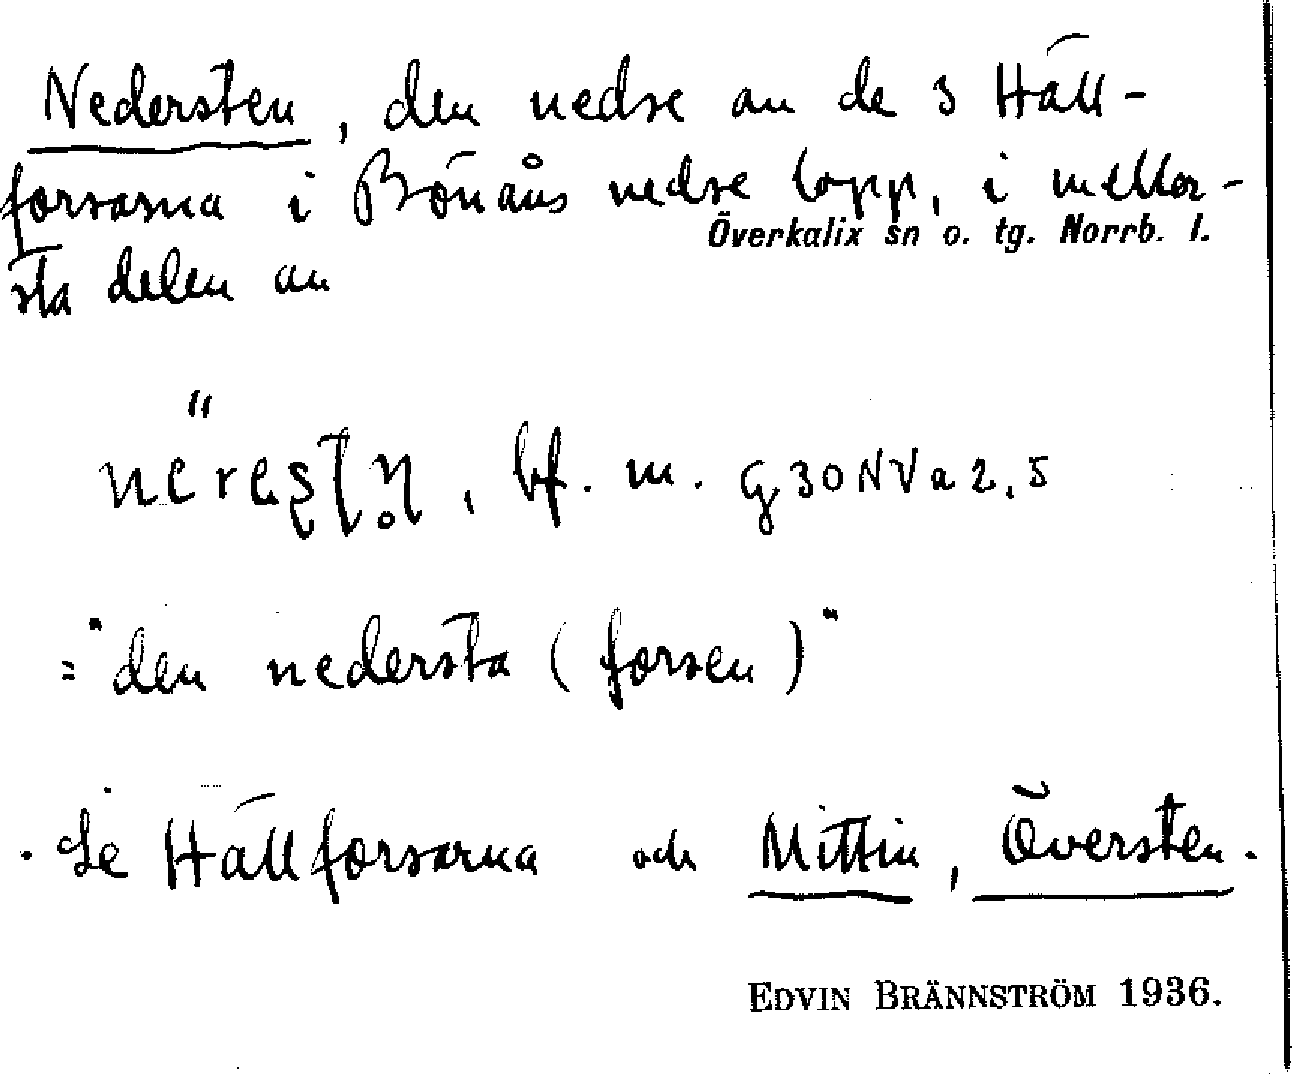 Nedersten, den nedre av de 3 Häll-
forsarna i Bönåns nedre lopp, i meller-
Överkalix sn o. tg. Norrb. l.
sta delen av
bf. m. G30NVa2,5
="den nedersta (forsen)"
. Se Hällforsarna och Mittin, Översten.
EDVIN BRÄNNSTRÖM 1936.